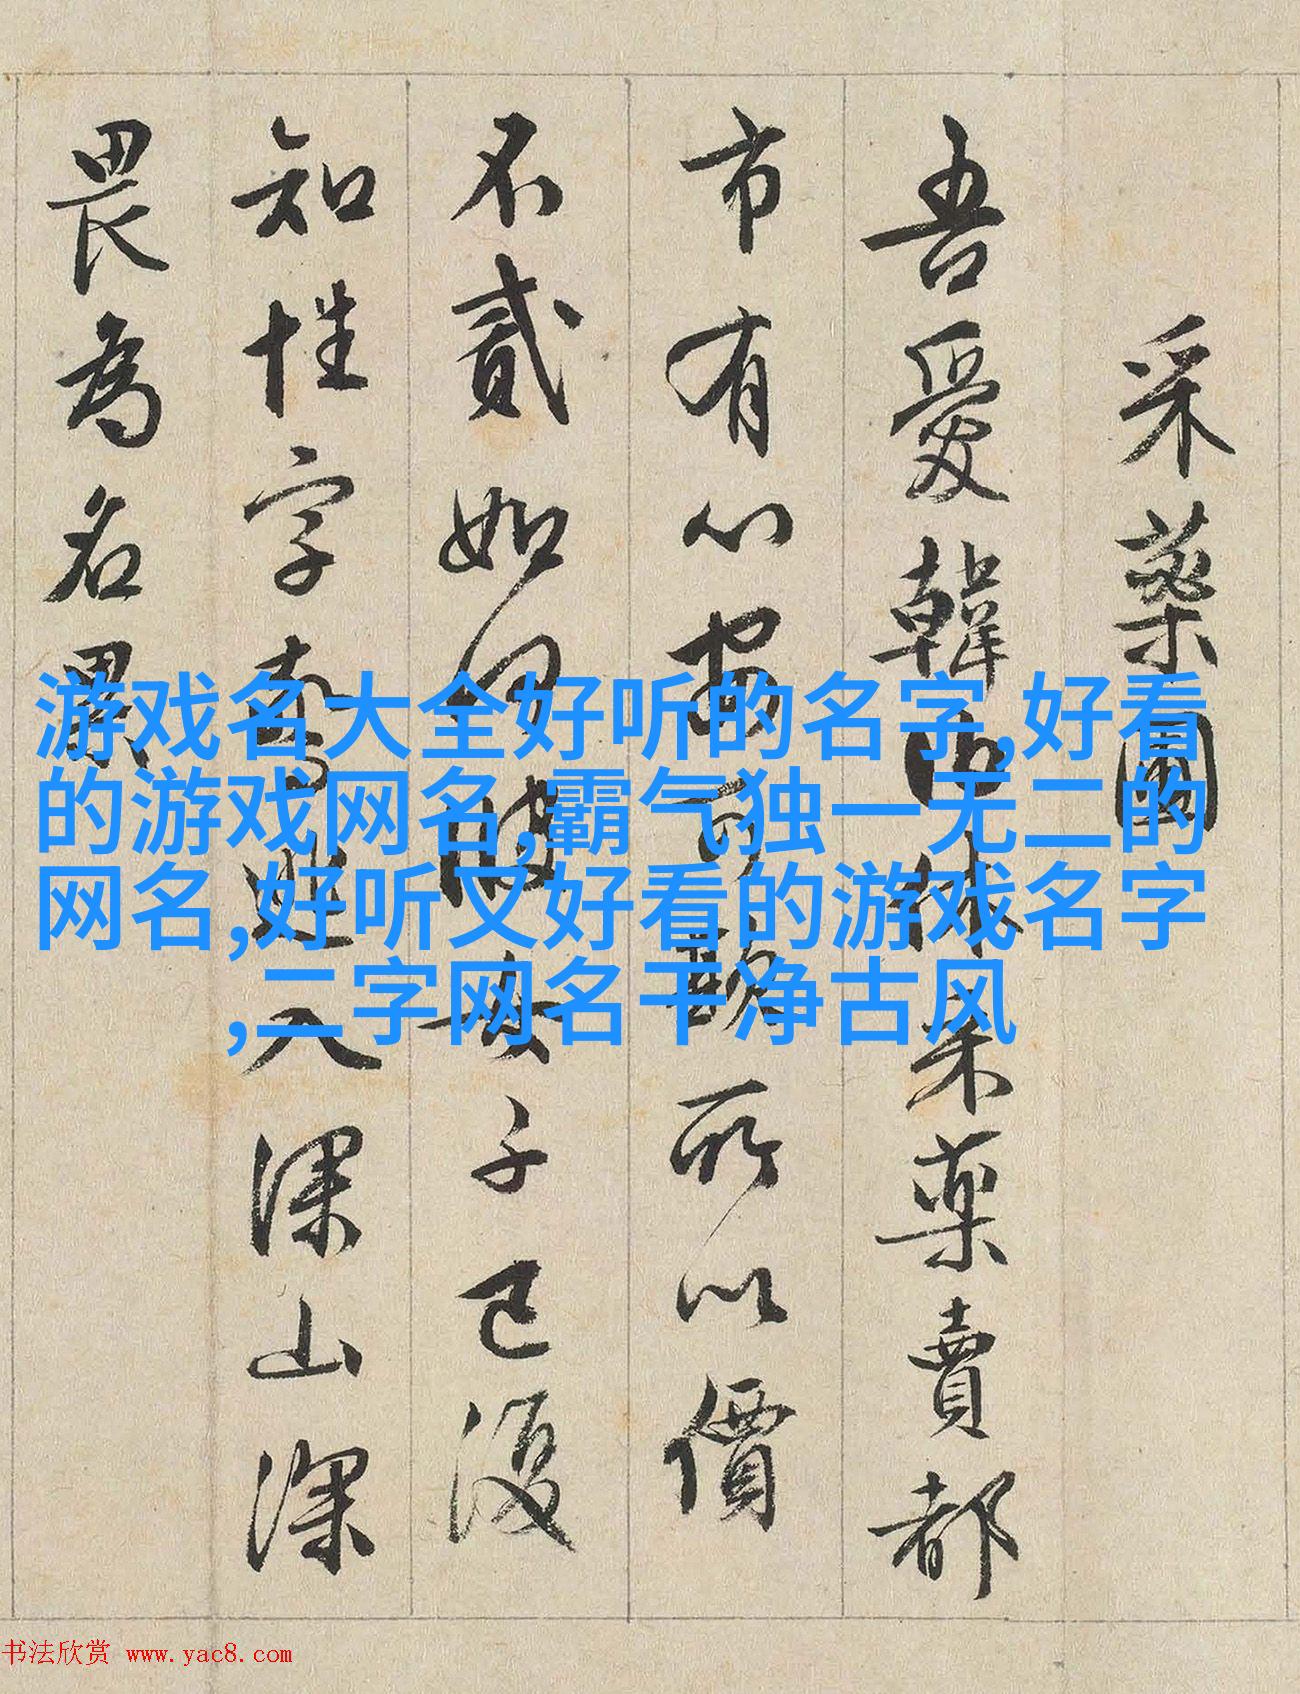 采藥圖
吾愛韓伯休采藥賣都
市有心安可欺所以價
不貳如何彼女子已復
知性字逃入深山深
畏為名累
游戏名大全好听的名字,好看
的游戏网名,霸气独一无二的
网名,好听又好看的游戏名字
,二字网名干净古风
书法欣赏 www.yac8.com